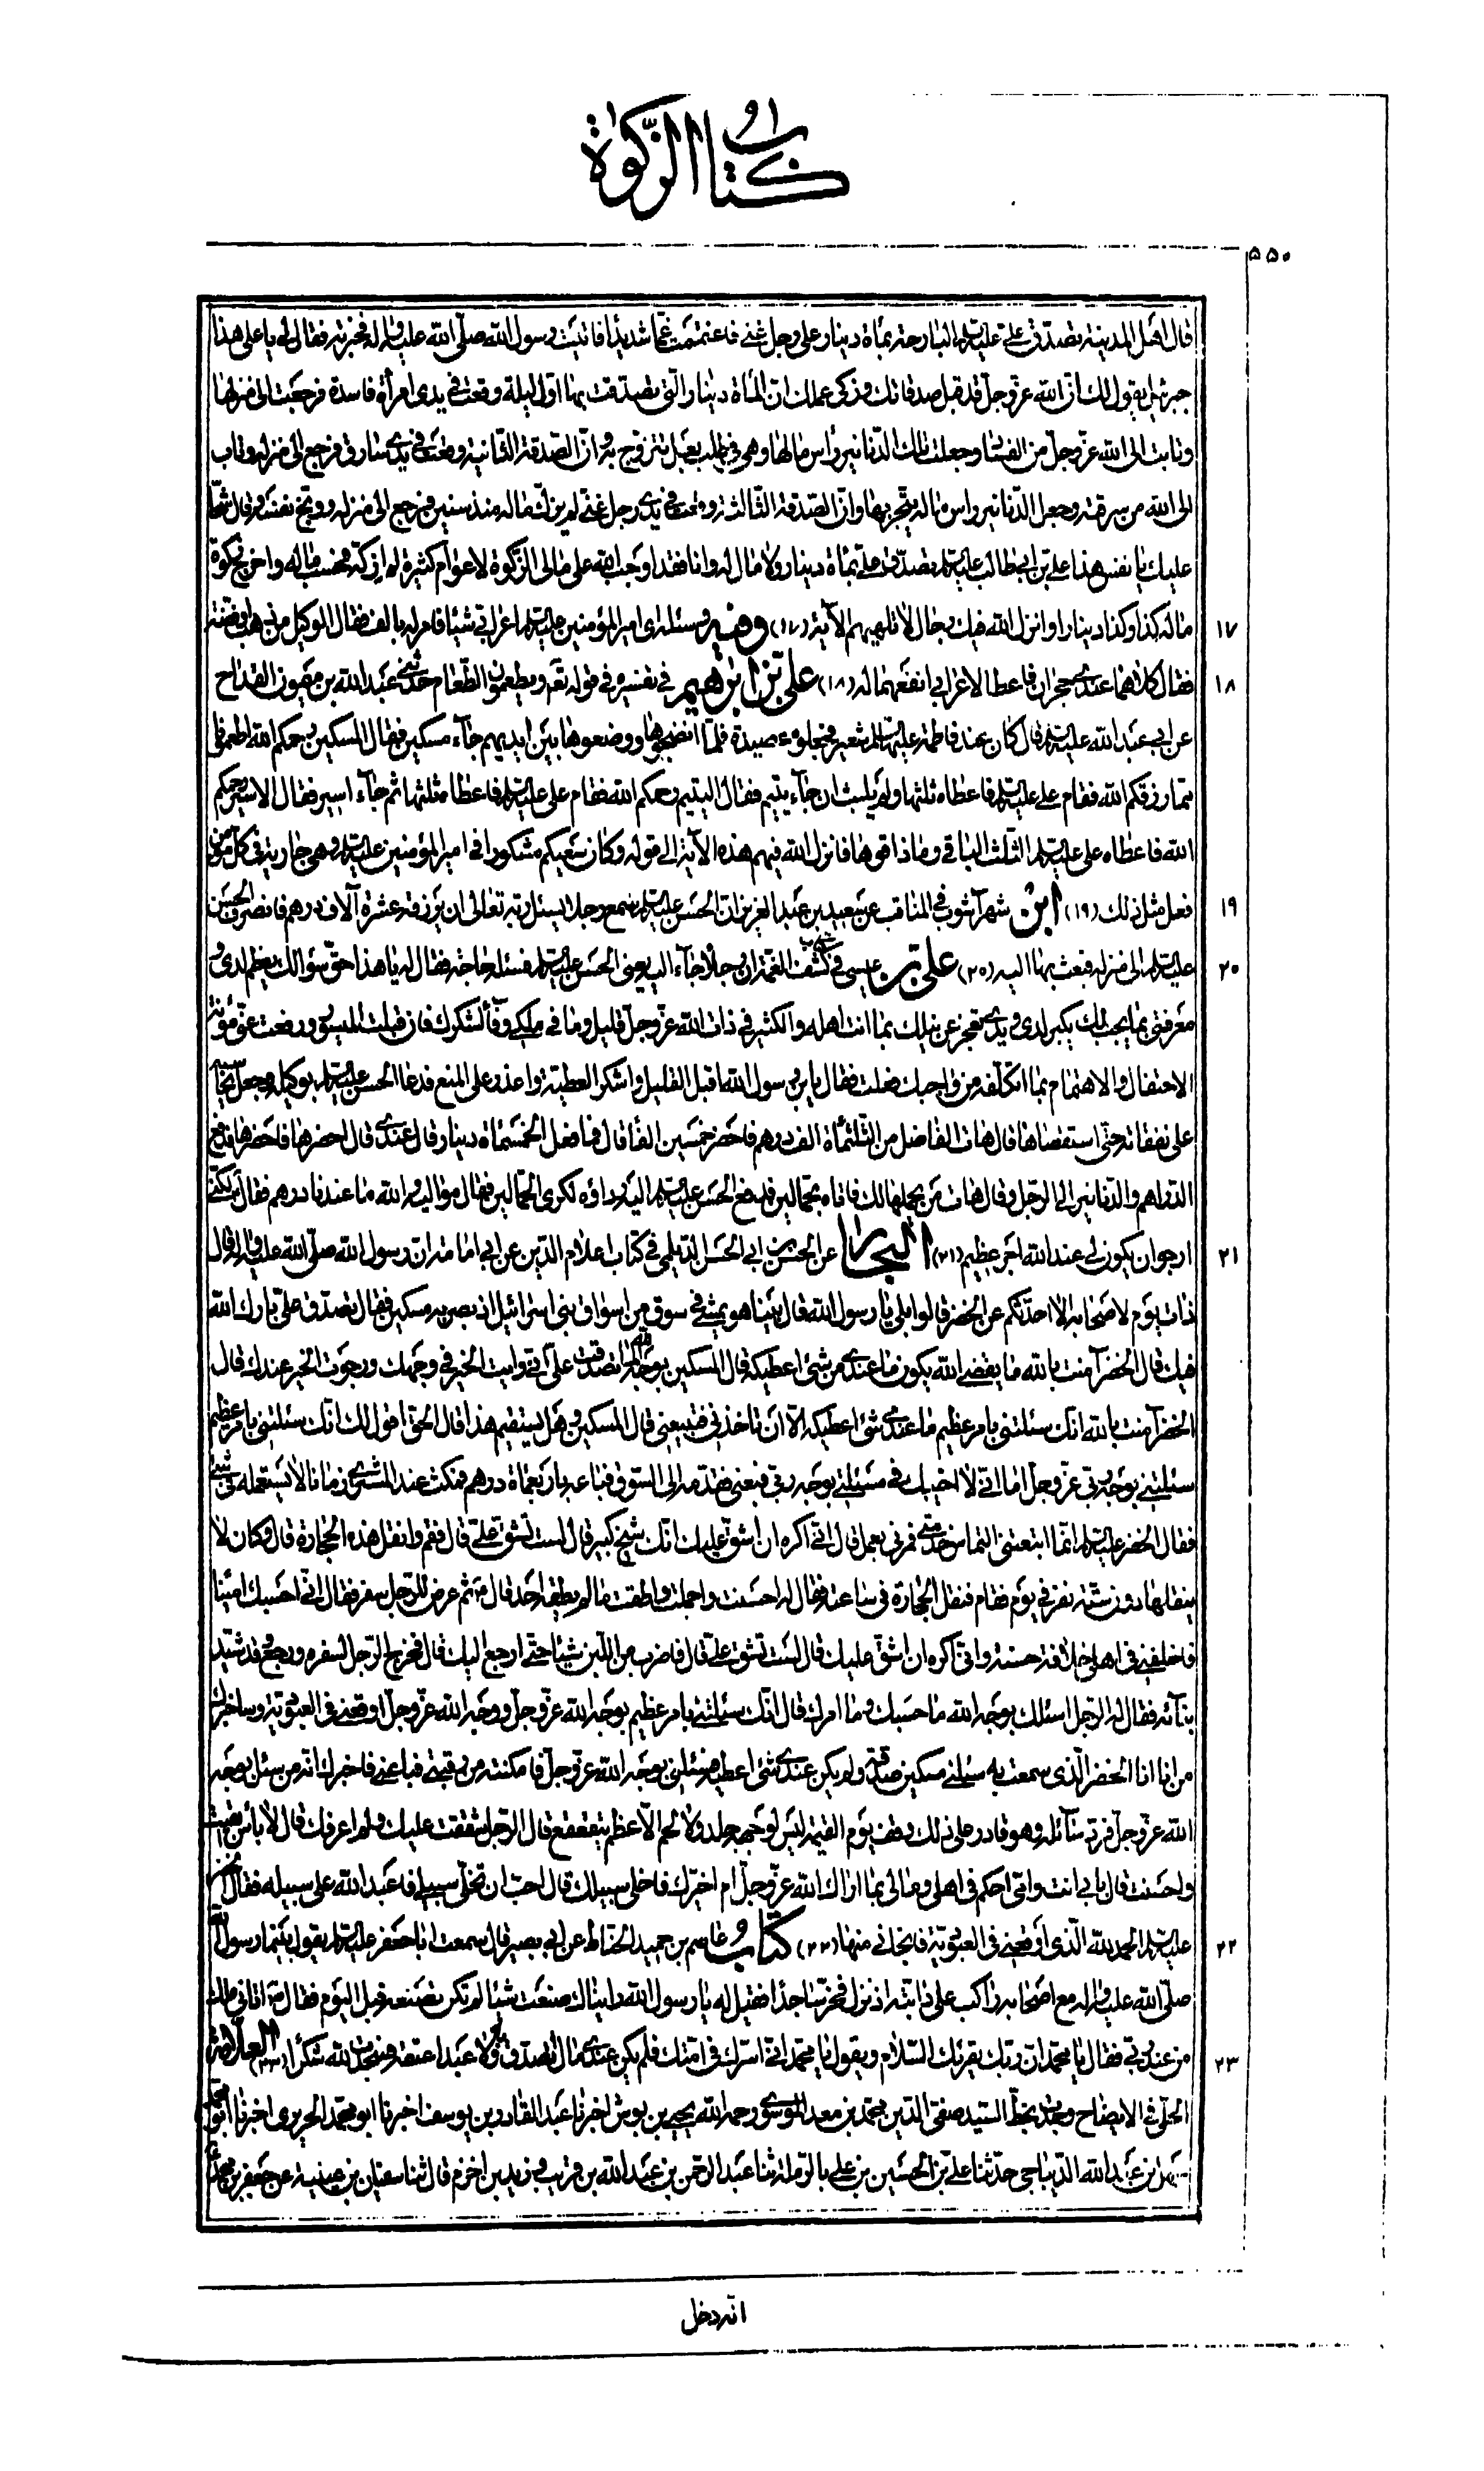 كتاب الزكوة
٥٥٠
قال اهل المدينة تصدق على عليه السلم البارحة بمأة دينار على رجل غنى فاغتممت غما شديدا فاتيت رسول الله صلى الله عليه واله فخبرته فقال لى يا على هذا
جبرئيل يقول لك ان الله عز وجل قد قبل صدقاتك وزكى عملك ان المأة دينار التى تصدقت بها اول ليلة وقعت فى يدى امرأة فاسدة فرجعت الى منزلها
وتابت الى الله عز وجل من الفساد وجعلت تلك الدنانير رأس مالها وهى فى طلب بعل تتزوج به وان الصدقة الثانية وقعت فى يدى سارق فرجع الى منزله وتاب
الى الله من سرقته وجعل الدنانير راس ماله يتجر بها وان الصدقة الثالثة وقعت فى يدى رجل غنى لم يزك ماله منذ سنين فرجع الى منزله ووبخ نفسه وقال شحا
عليك يا نفس هذا على بن ابى طالب عليه السلم تصدق على بمأة دينار ولا مال له وانا فقد اوجب الله على مالى الزكوة لاعوام كثيرة لم ازكه فحسب ماله واخرج زكوة
ماله كذا وكذا دينارا وانزل الله فيك رجال لا تلهيهم الآية (١٧) وفيه وسئل اى امير المؤمنين عليه السلم اعرابى شيئا فامر له بالف فقال الوكيل من ذهب او فضة
١٧
فقال كلاهما عندى حجران فاعط الاعرابى انفعهما له (١٨) على بن ابراهيم فى تفسيره فى قوله تعم ويطعمون الطعام حدثنى ابى عن عبد الله بن ميمون القداح
١٨
عن ابى عبد الله عليه السلم قال كان عند فاطمة عليها السلم شعير فجعلوه عصيدة فلما انضجوها ووضعوها بين ايديهم جاء مسكين فقال المسكين رحمكم الله اطعمونا
مما رزقكم الله فقام على عليه السلم فاعطاه ثلثها ولم يلبث ان جاء يتيم فقال اليتيم رحمكم الله فقام على عليه السلم فاعطاه ثلثها ثم جاء اسير فقال الاسير رحمكم
الله فاعطاه على عليه السلم الثلث الباقى وما ذاقوها فانزل الله فيهم هذه الآية الى قوله وكان سعيكم مشكورا فى امير المؤمنين عليه السلم وهى جارية فى كل مؤمن
فعل مثل ذلك (١٩) ابن شهرآشوب فى المناقب عن سعيد بن عبد العزيز ان الحسن عليه السلم سمع رجلا يسئل ربه تعالى ان يرزقه عشرة آلاف درهم فانصرف الحسن
١٩
عليه السلم الى منزله فبعث بها اليه (٢٠) على بن عيسى فى كشف الغمة ان رجلا جاء اليه يعنى الحسن عليه السلم فسئله حاجة فقال له يا هذا حق سؤالك يعظم لدى و
٢٠
معرفتى بما يجب لك يكبر لدى ويدى تعجز عن نيلك بما انت اهله والكثير فى ذات الله عز وجل قليل وما فى ملكى وفاء لشكرك فان قبلت الميسور ورفعت عنى مؤنة
الاحتفال والاهتمام بما اتكلفه من واجبك فعلت فقال يابن رسول الله اقبل القليل واشكر العطية واعذر على المنع فدعا الحسن عليه السلم بوكيله وجعل يحاسبه
على نفقاته حتى استقصاها قال هات الفاضل من الثلثمأة الف درهم فاحضر خمسين الفا قال فما فعل الخمسمأة دينار قال عندى قال احضرها فاحضرها فدفع
الدراهم والدنانير الى الرجل وقال هات من يحملها لك فاتاه بحمالين فدفع الحسن عليه السلم اليه رداؤه لكرى الحمالين فقال مواليه والله ما عندنا درهم فقال لكنى
ارجو ان يكون لى عند الله اجر عظيم (٢١) البحار عن الحسن بن ابى الحسن الديلمى فى كتاب اعلام الدين عن ابى امامة ان رسول الله صلى الله عليه واله قال
٢١
ذات يوم لاصحابه الا احدثكم عن الخضر قالوا بلى يا رسول الله قال بينا هو يمشى فى سوق من اسواق بنى اسرائيل اذ بصر به مسكين فقال تصدق على بارك الله
فيك قال الخضر آمنت بالله ما يقضى الله يكون ما عندى من شئ اعطيكه قال المسكين بوجه الله لما تصدقت على انى رايت الخير فى وجهك ورجوت الخير عندك قال
الخضر آمنت بالله انك سئلتنى بامر عظيم ما عندى شئ اعطيكه الا ان تاخذنى فتبيعنى قال المسكين وهل يستقيم هذا قال الحق اقول لك انك سئلتنى بامر عظيم
سئلتنى بوجه ربى عز وجل اما انى لا اخيبك فى مسئلتى بوجه ربى فبعنى فقدمه الى السوق فباعه باربعمأة درهم فمكث عند المشترى زمانا لا يستعمله فى شئ
فقال الخضر عليه السلم انما ابتعتنى التماس خدمتى فمرنى بعمل قال انى اكره ان اشق عليك انك شيخ كبير قال لست تشق على قال فقم فانقل هذه الحجارة قال وكان لا
ينقلها دون ستة نفر فى يوم فقام فنقل الحجارة فى ساعته فقال له احسنت واجملت واطقت ما لم يطقه احد قال ثم عرض للرجل سفر فقال انى احسبك امينا
فاخلفنى فى اهلى خلافة حسنة وانى اكره ان اشق عليك قال لست تشق على قال فاضرب من اللبن شيئا حتى ارجع اليك قال فخرج الرجل لسفره ورجع وقد شيد
بناءه فقال له الرجل اسئلك بوجه الله ما حسبك وما امرك قال انك سئلتنى بامر عظيم بوجه الله عز وجل ووجه الله عز وجل اوقعنى فى العبودية وساخبرك
من انا انا الخضر الذى سمعت به سئلنى مسكين صدقة ولم يكن عندى شئ اعطيه فسئلنى بوجه الله عز وجل فامكنته من رقبتى فباعنى فاخبرك انه من سئل بوجه
الله عز وجل فرد سائله وهو قادر على ذلك وقف يوم القيمة ليس لوجهه جلد ولا لحم الا عظم يتقعقع قال الرجل شققت عليك ولم اعرفك قال لا باس ابقيت
واحسنت قال بابى انت وامى احكم فى اهلى ومالى بما اراك الله عز وجل ام اخيرك فاخلى سبيلك قال احب ان تخلى سبيلى فاعبد الله على سبيله فقال الخضر
عليه السلم الحمد لله الذى اوقعنى فى العبودية فانجانى منها (٢٢) كتاب عاصم بن حميد الحناط عن ابى بصير قال سمعت ابا جعفر عليه السلم يقول بينما رسول الله
٢٢
صلى الله عليه واله مع اصحابه راكب على دابته اذ نزل فخر ساجدا فقيل له يا رسول الله رايناك صنعت شيئا لم تكن تصنعه قبل اليوم فقال اتانى ملك
من عند ربى فقال يا محمد ان ربك يقرئك السلام ويقول يا محمد انى اسرك فى امتك فلم يكن عندى مال اتصدق به ولا عبد اعتقه فسجدت لله شكرا (٢٣) العلامة
٢٣
الحلى فى الايضاح وجدت بخط السيد صفى الدين محمد بن معد الموسوى رحمه الله يحيى بن بوش اخبرنا عبد القادر بن يوسف اخبرنا ابو محمد الجريرى اخبرنا ابو محمد
سهل بن عبد الله الديباجى حدثنا على بن الحسين بن على بالرملة ثنا عبد الرحمن بن عبد الله بن قريب وزيد بن اخزم قال ثنا سفيان بن عيينة عن جعفر بن محمد
انه دخل